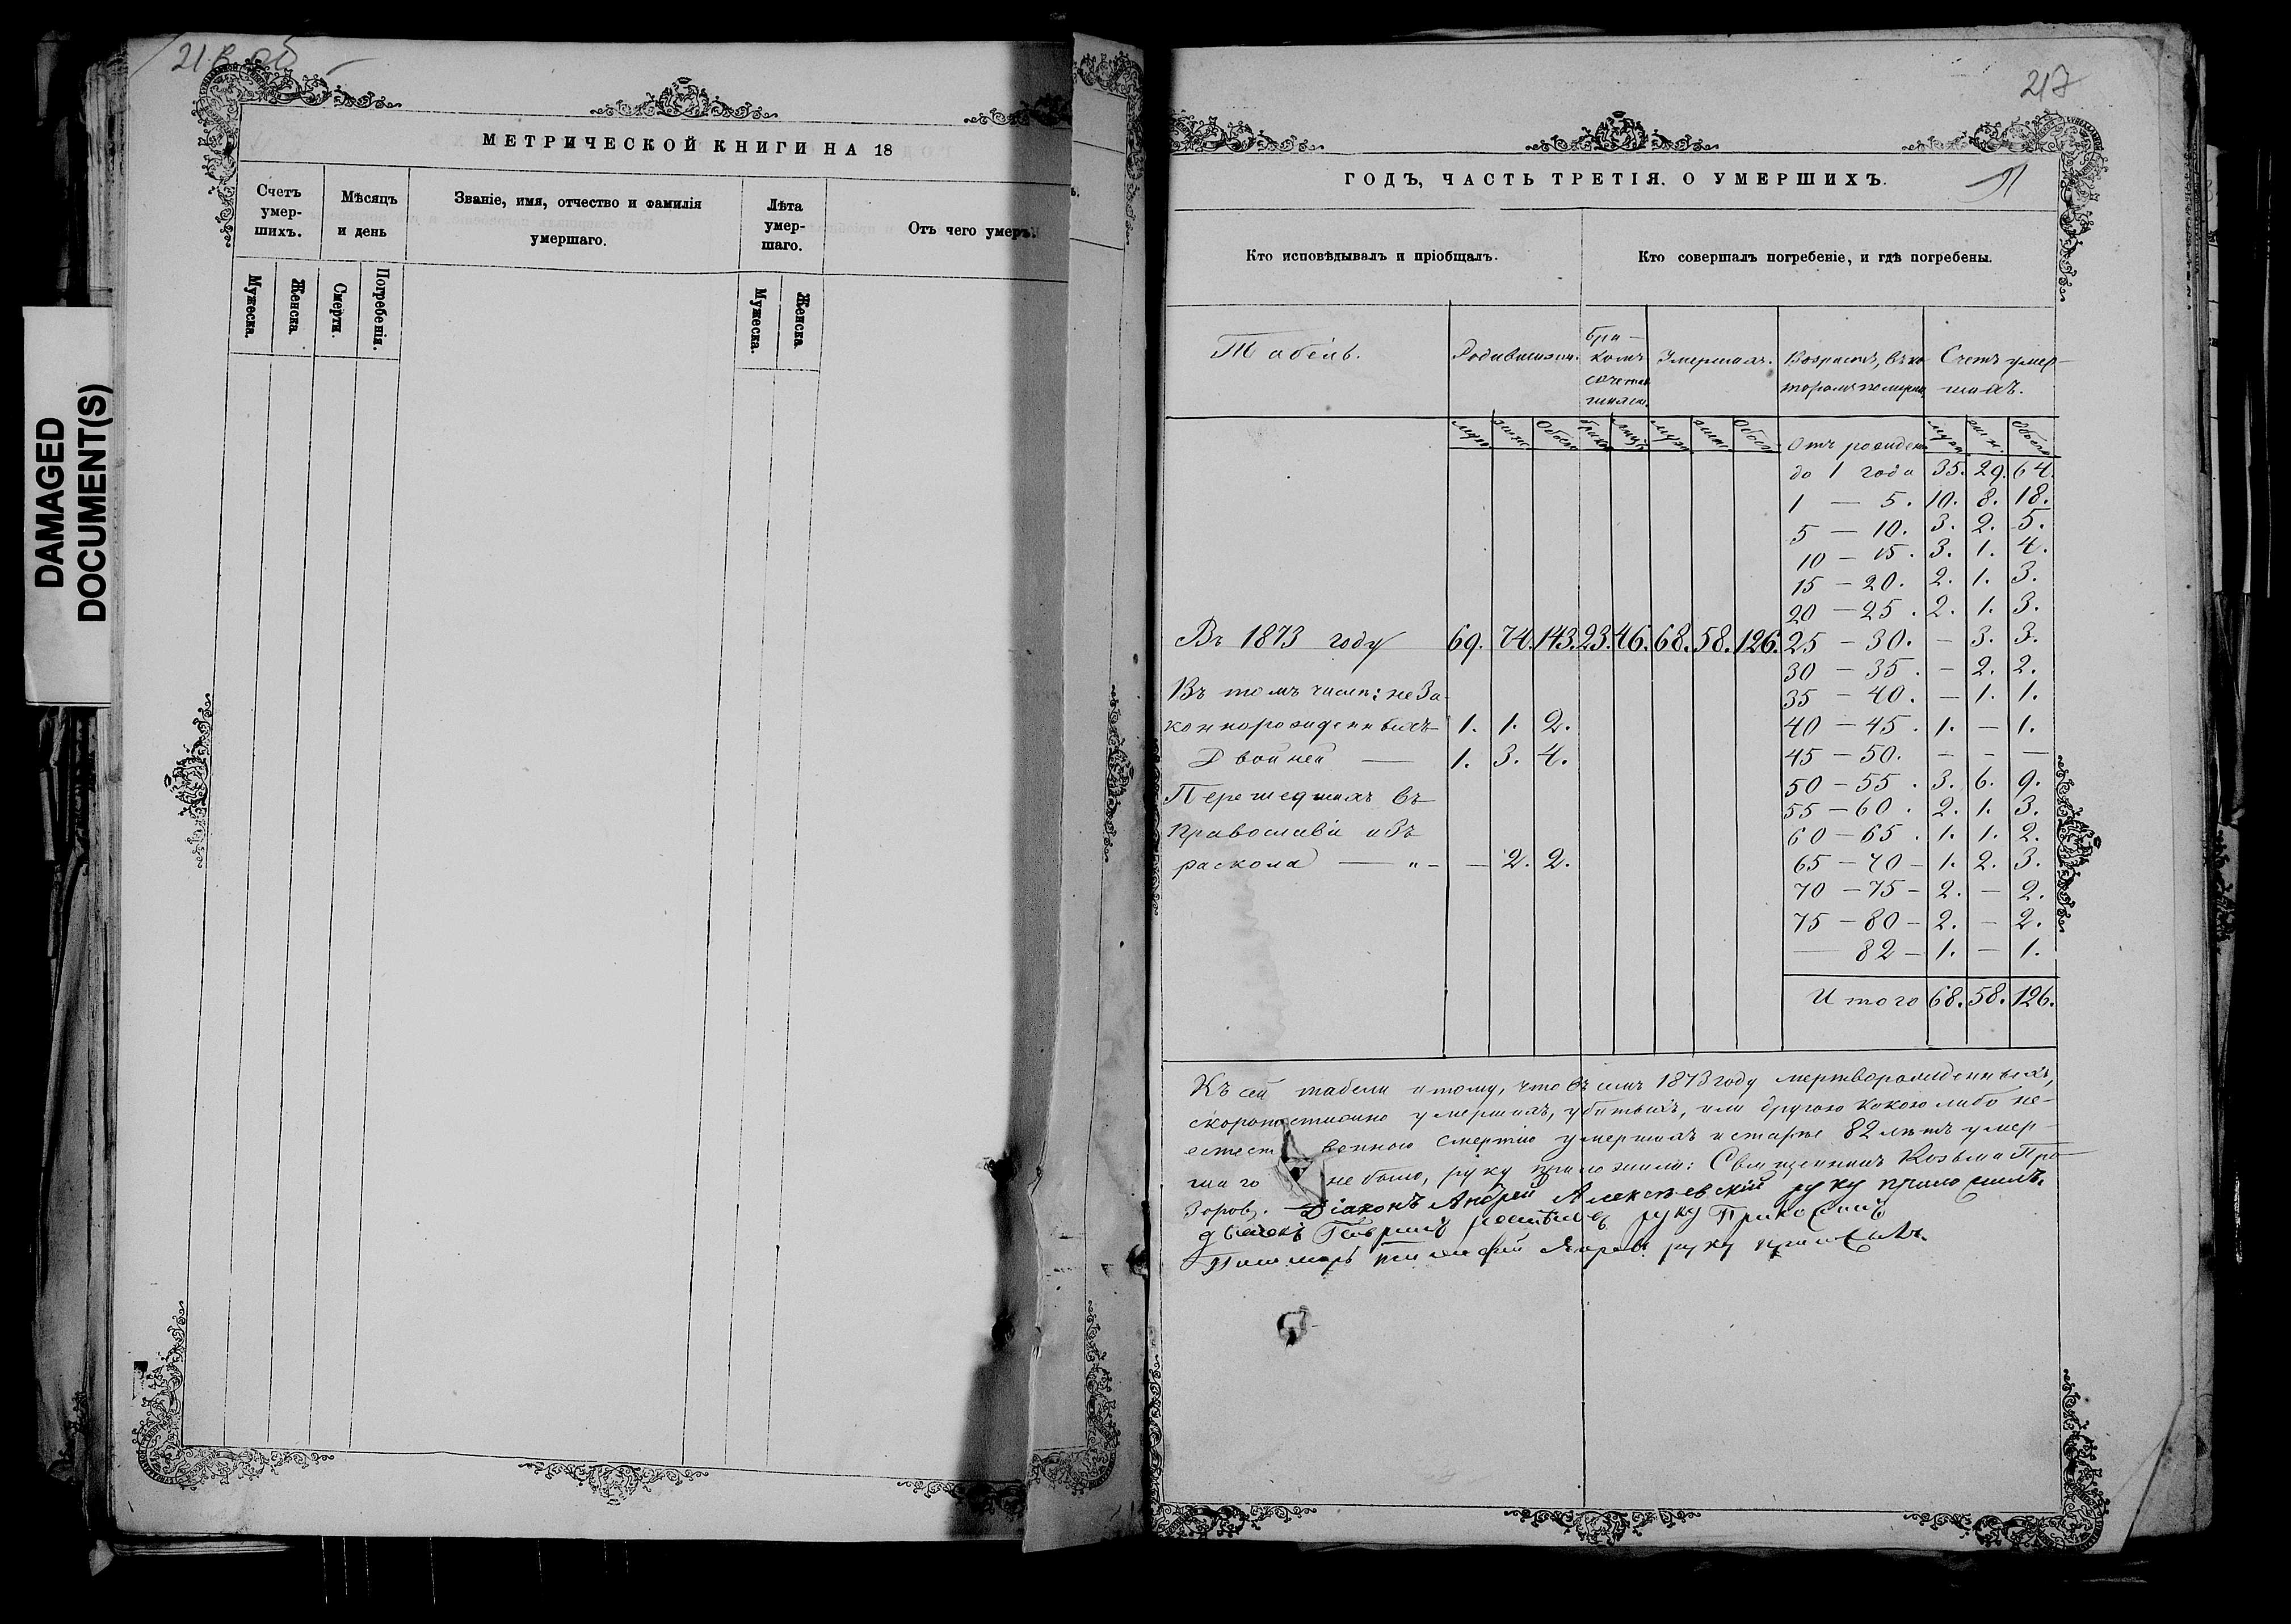 216 об
DAMAGED
DOCUMENT(S)
МЕТРИЧЕСКОЙ КНИГИ НА 18
Счетъ умер-шихъ.
Мѣсяцъ и день
Званіе, имя, отчество и фамилія умершаго.
Лѣта умер-шаго.
Отъ чего умеръ.
Мужеска. Женска. Смерти. Погребенія. Мужеска. Женска.
217
ГОДЪ, ЧАСТЬ ТРЕТІЯ. О УМЕРШИХЪ.
Кто исповѣдывалъ и пріобщалъ. Кто совершалъ погребеніе, и гдѣ погребены.
Табель. Родившихся. Бра-комъ сочетав-шихся. Умершихъ. Возрастъ, въ ко-торомъ померли Счетъ умер-шихъ.
муж. жен. Обоего браков лицъ муж. жен. Обоего Отъ рожденія муж. жен. Обоего
до 1 года 35. 29. 64.
1 — 5. 10. 8. 18.
5 — 10. 3. 2. 5.
10 — 15. 3. 1. 4.
15 — 20. 2. 1. 3.
20 — 25. 2. 1. 3.
Въ 1873 году 69. 74. 143. 23. 46. 68. 58. 126. 25 — 30. — 3. 3.
30 — 35. — 2. 2.
Въ томъ числѣ: неза- 35 — 40. — 1. 1.
коннорожденныхъ 1. 1. 2. 40 — 45. 1. — 1.
Двойней — 1. 3. 4. 45 — 50. — — —
Перешедшихъ въ 50 — 55. 3. 6. 9.
55 — 60. 2. 1. 3.
Православіе изъ 60 — 65. 1. 1. 2.
раскола — " — — 2. 2. 65 — 70 — 1. 2. 3.
70 — 75 — 2. — 2.
75 — 80 — 2. — 2.
— 82 — 1. — 1.
Итого 68. 58. 126.
Къ сей табели и тому, что въ семъ 1873 году мертворожденныхъ,
скоропостижно умершихъ, убитыхъ, или другою какою либо не-
естественною смертію умершихъ и старѣе 82 лѣтъ умер-
шаго не было, руку приложили: Священникъ Козьма Про-
зоровъ. Діаконъ Андрей Алексѣевскій руку приложилъ.
дьячокъ Гавриилъ руку Приложилъ
Пономарь руку приложилъ.